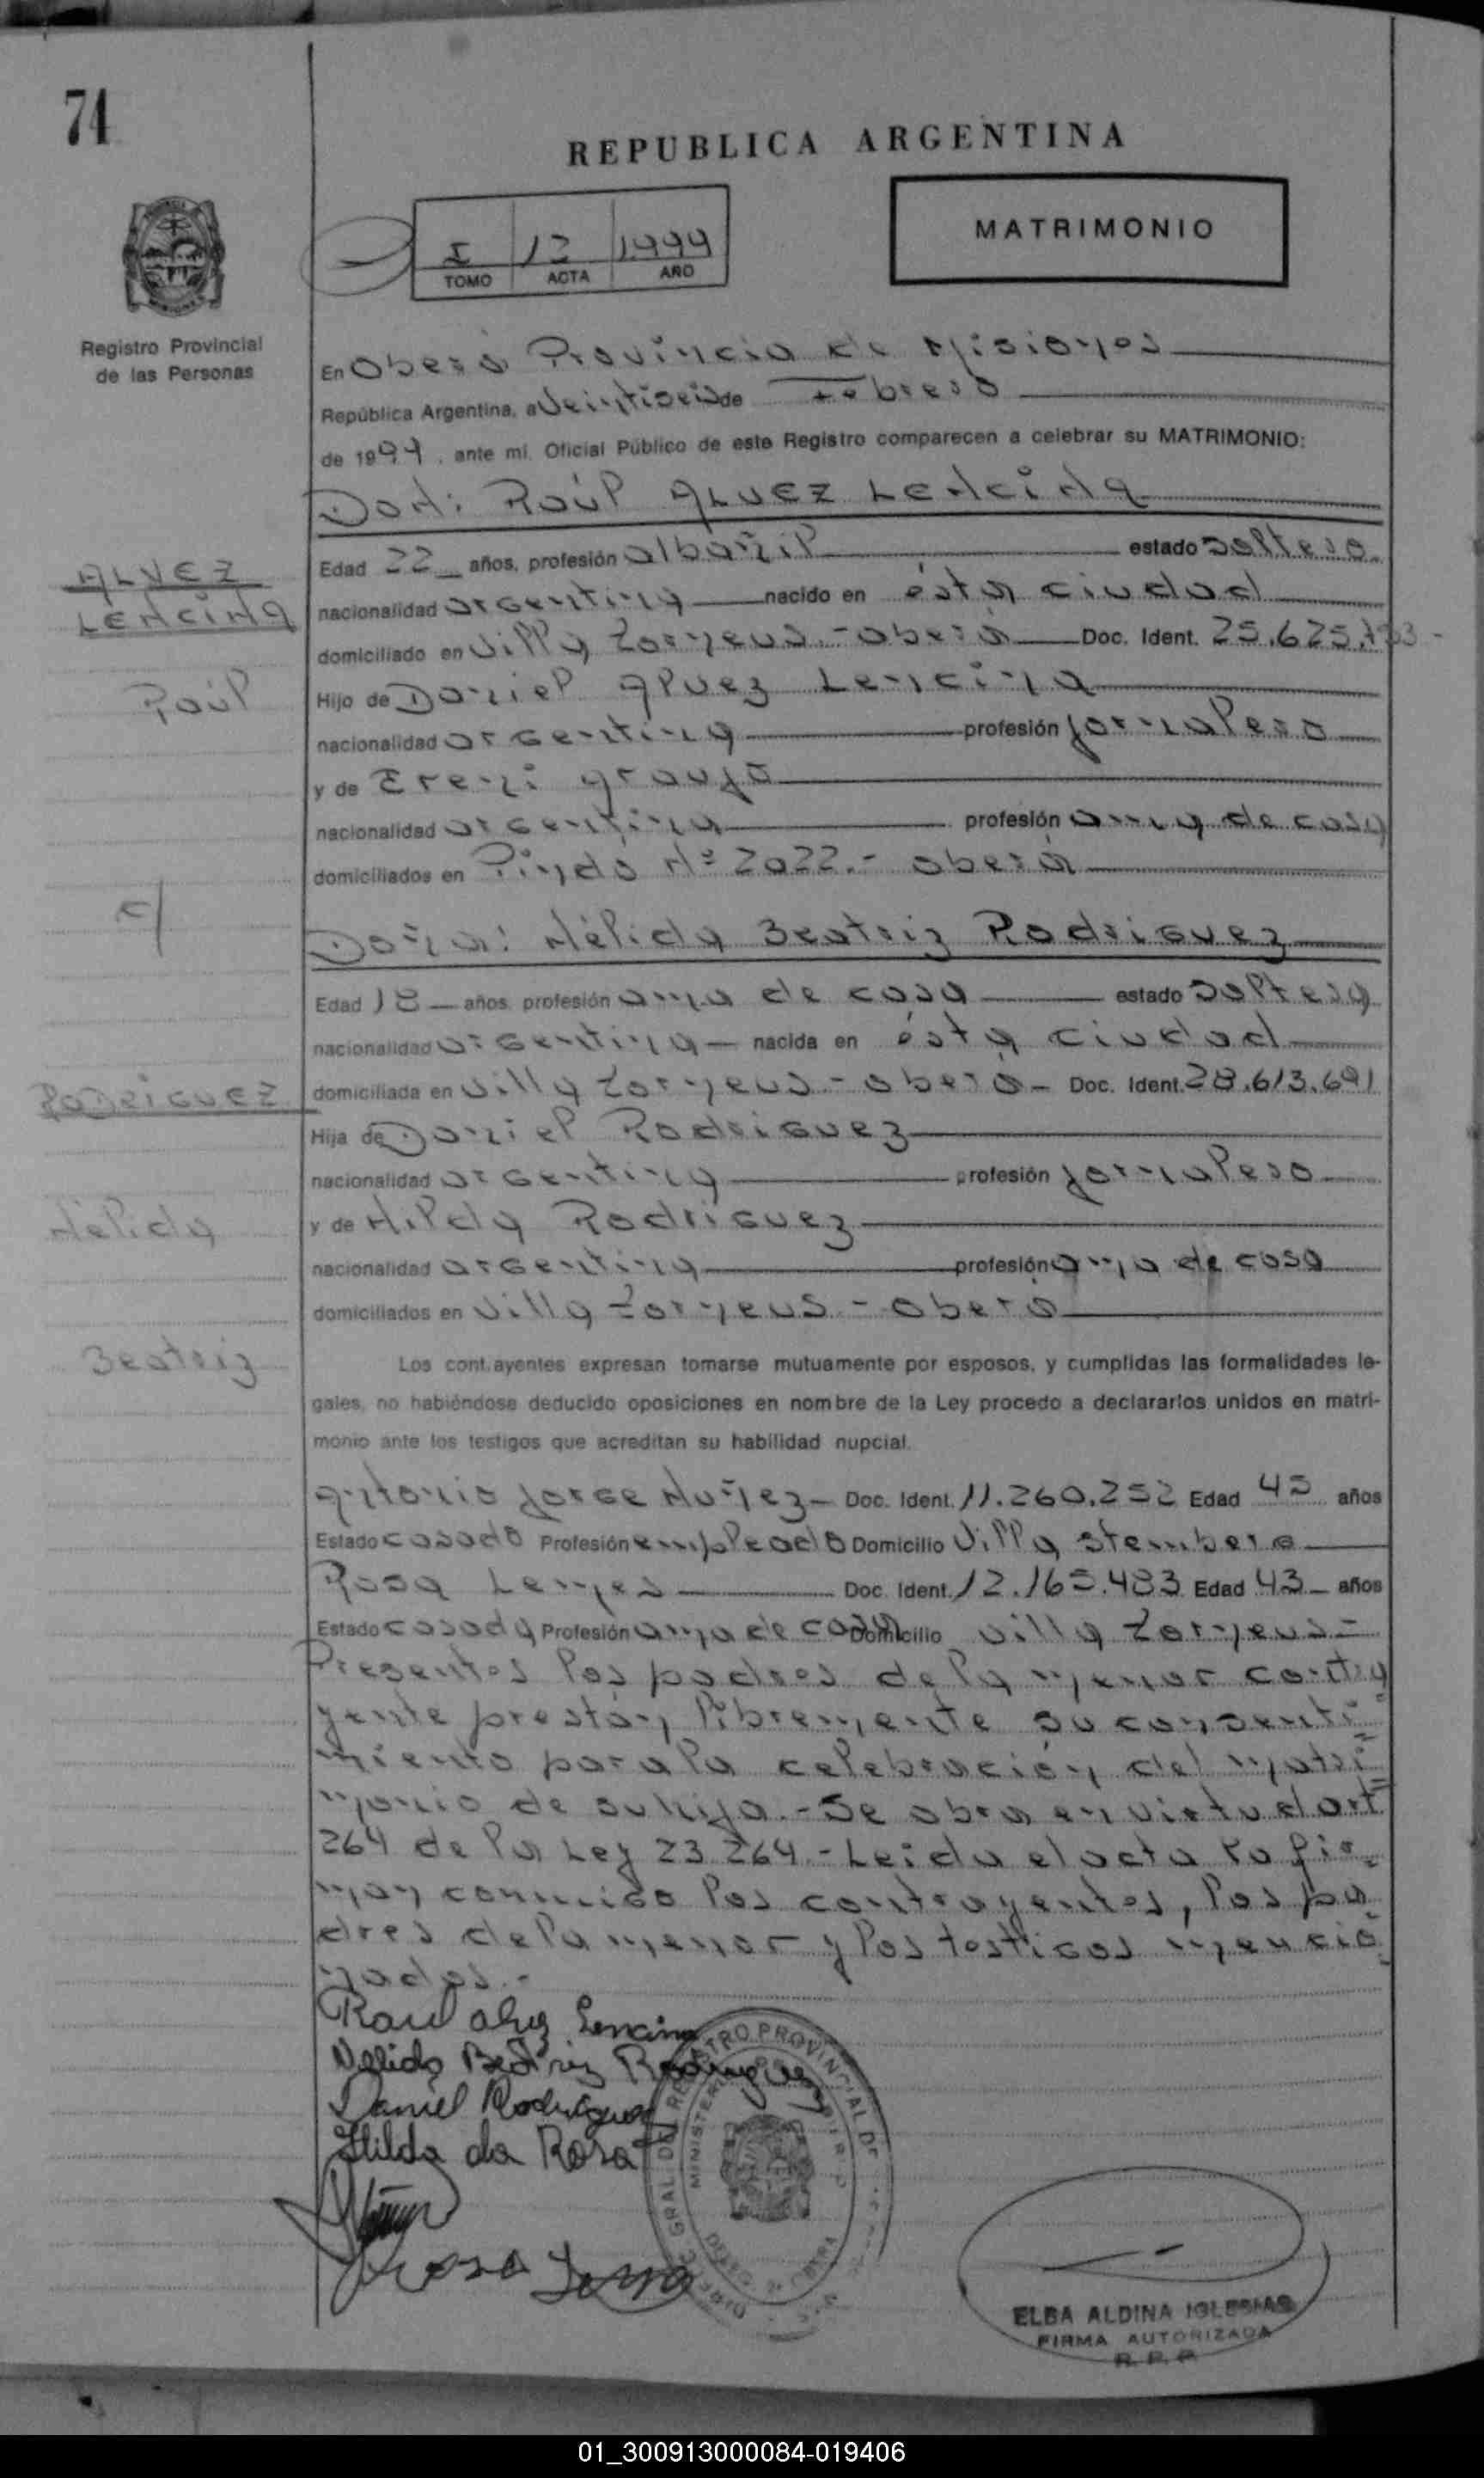 74
REPUBLICA ARGENTINA
I 12 1.994
TOMO ACTA AÑO
MATRIMONIO
Registro Provincial
de las Personas
En Oberá Provincia de Misiones
República Argentina, a Veintiseis de Febrero
de 1994, ante mí, Oficial Público de este Registro comparecen a celebrar su MATRIMONIO:
Don: Raúl ALVEZ LENCINA
Edad 22 años, profesión albañil estado soltero
ALVEZ
LENCINA
nacionalidad argentina nacido en ésta ciudad
domiciliado en Villa - Oberá Doc. Ident. 25.625.
Raúl
Hijo de Daniel Alvez Lencina
nacionalidad argentina profesión jornalero
y de Ereni Araujo
nacionalidad argentina profesión ama de casa
domiciliados en Pindó Nº 2022.- Oberá
c/
Doña: Nélida Beatriz Rodriguez
Edad 18 años, profesión ama de casa estado soltera
nacionalidad argentina nacida en ésta ciudad
RODRIGUEZ
domiciliada en Villa - Oberá - Doc. Ident. 28.613.691
Hija de Daniel Rodriguez
nacionalidad argentina profesión jornalero
Nélida
y de Hilda Rodriguez
nacionalidad argentina profesión ama de casa
domiciliados en Villa - Oberá
Beatriz
Los contrayentes expresan tomarse mutuamente por esposos, y cumplidas las formalidades le-
gales, no habiéndose deducido oposiciones en nombre de la Ley procedo a declararlos unidos en matri-
monio ante los testigos que acreditan su habilidad nupcial.
Antonio Jorge Nuñez - Doc. Ident. 11.260.252 Edad 45 años
Estado casado Profesión empleado Domicilio Villa Stemberg
Rosa Lemes Doc. Ident. 12.165.483 Edad 43 años
Estado casada Profesión ama de casa Domicilio Villa
Presentes los padres de la menor contra
yente prestan libremente su consenti=
miento para la celebración del matri=
monio de su hija.- Se obra en virtud art.
264 de la Ley 23.264.- Leida el acta la fir=
man conmigo los contrayentes, los pa
dres de la menor y los testigos mencio
nados.-
Raul Alvez Lencina
Nelida Beatriz Rodriguez
Daniel Rodriguez
Hilda da Rosa
Rosa
ELBA ALDINA IGLESIAS
FIRMA AUTORIZADA
R. P. P.
01_300913000084-019406